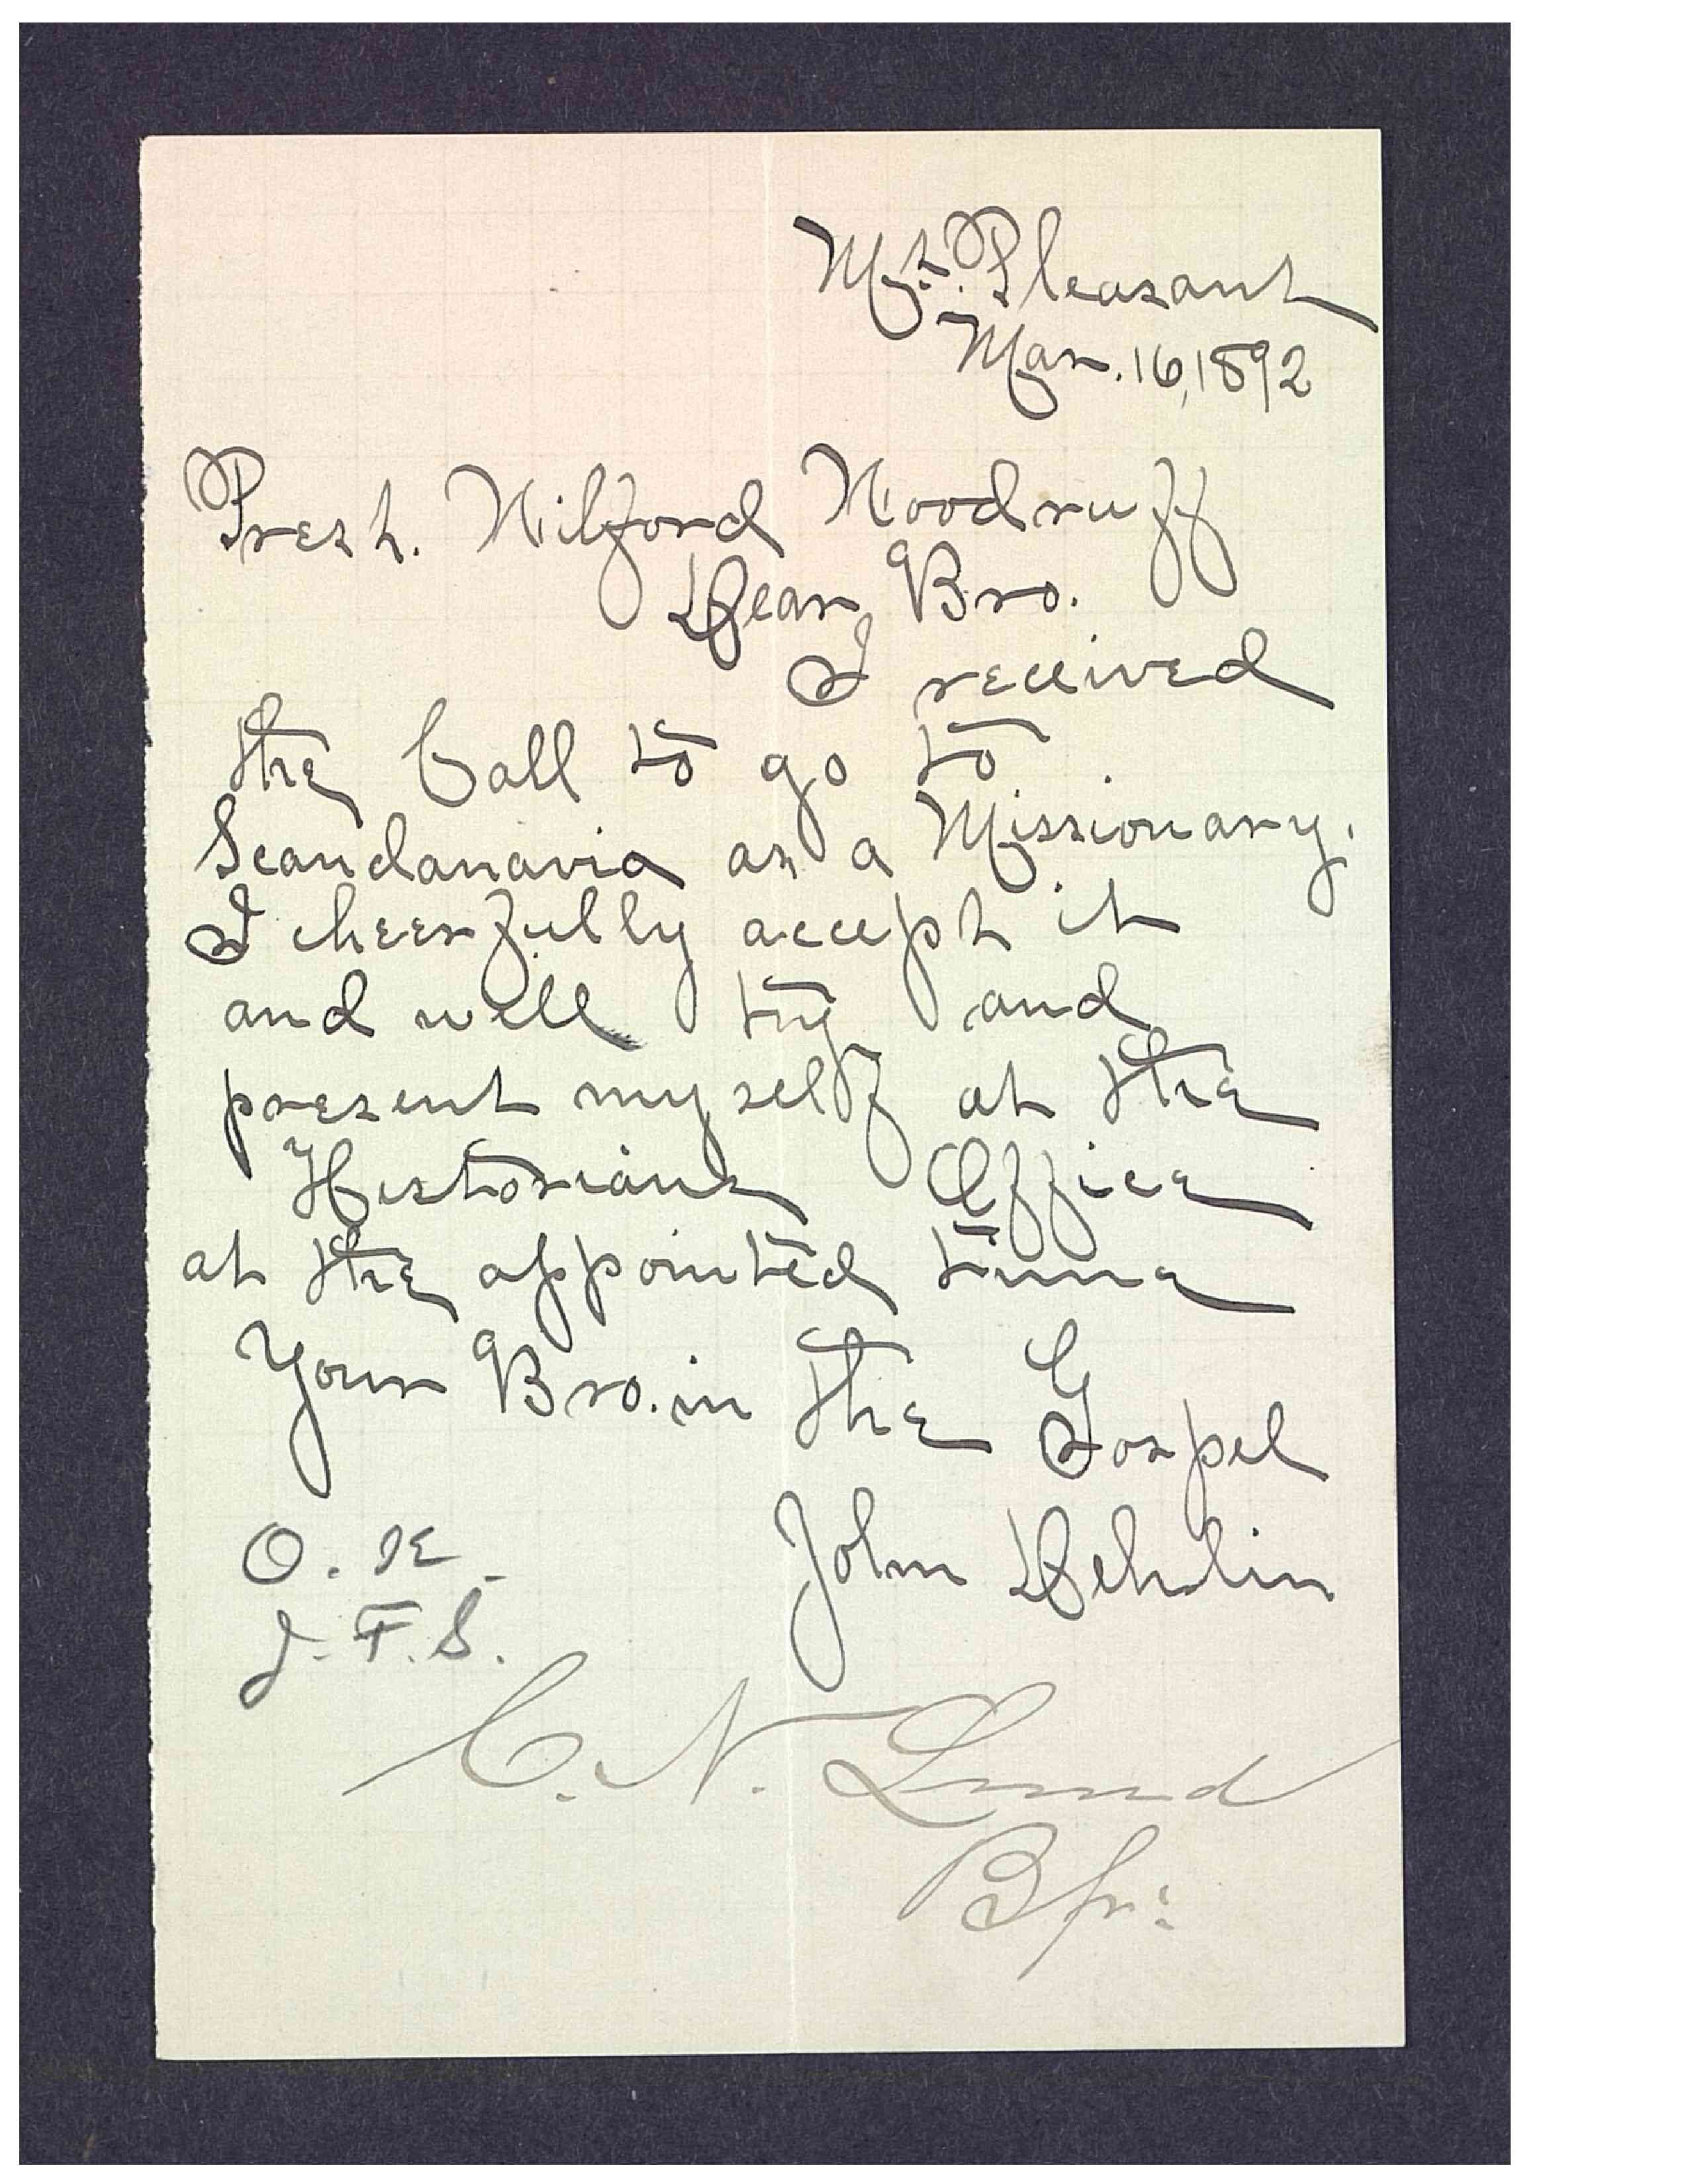 Mt. Pleasant
Mar. 16, 1892
Prest. Wilford Woodruff
Dear Bro.
I received
the Call to go to
Scandanavia as a Missionary.
I cheerfully accept it
and will try and
present myself at the
Historians Office
at the appointed time
Your Bro. in the Gospel
John Dehlin
O. K.
J. F. S.
C. N. Lund
Bp: